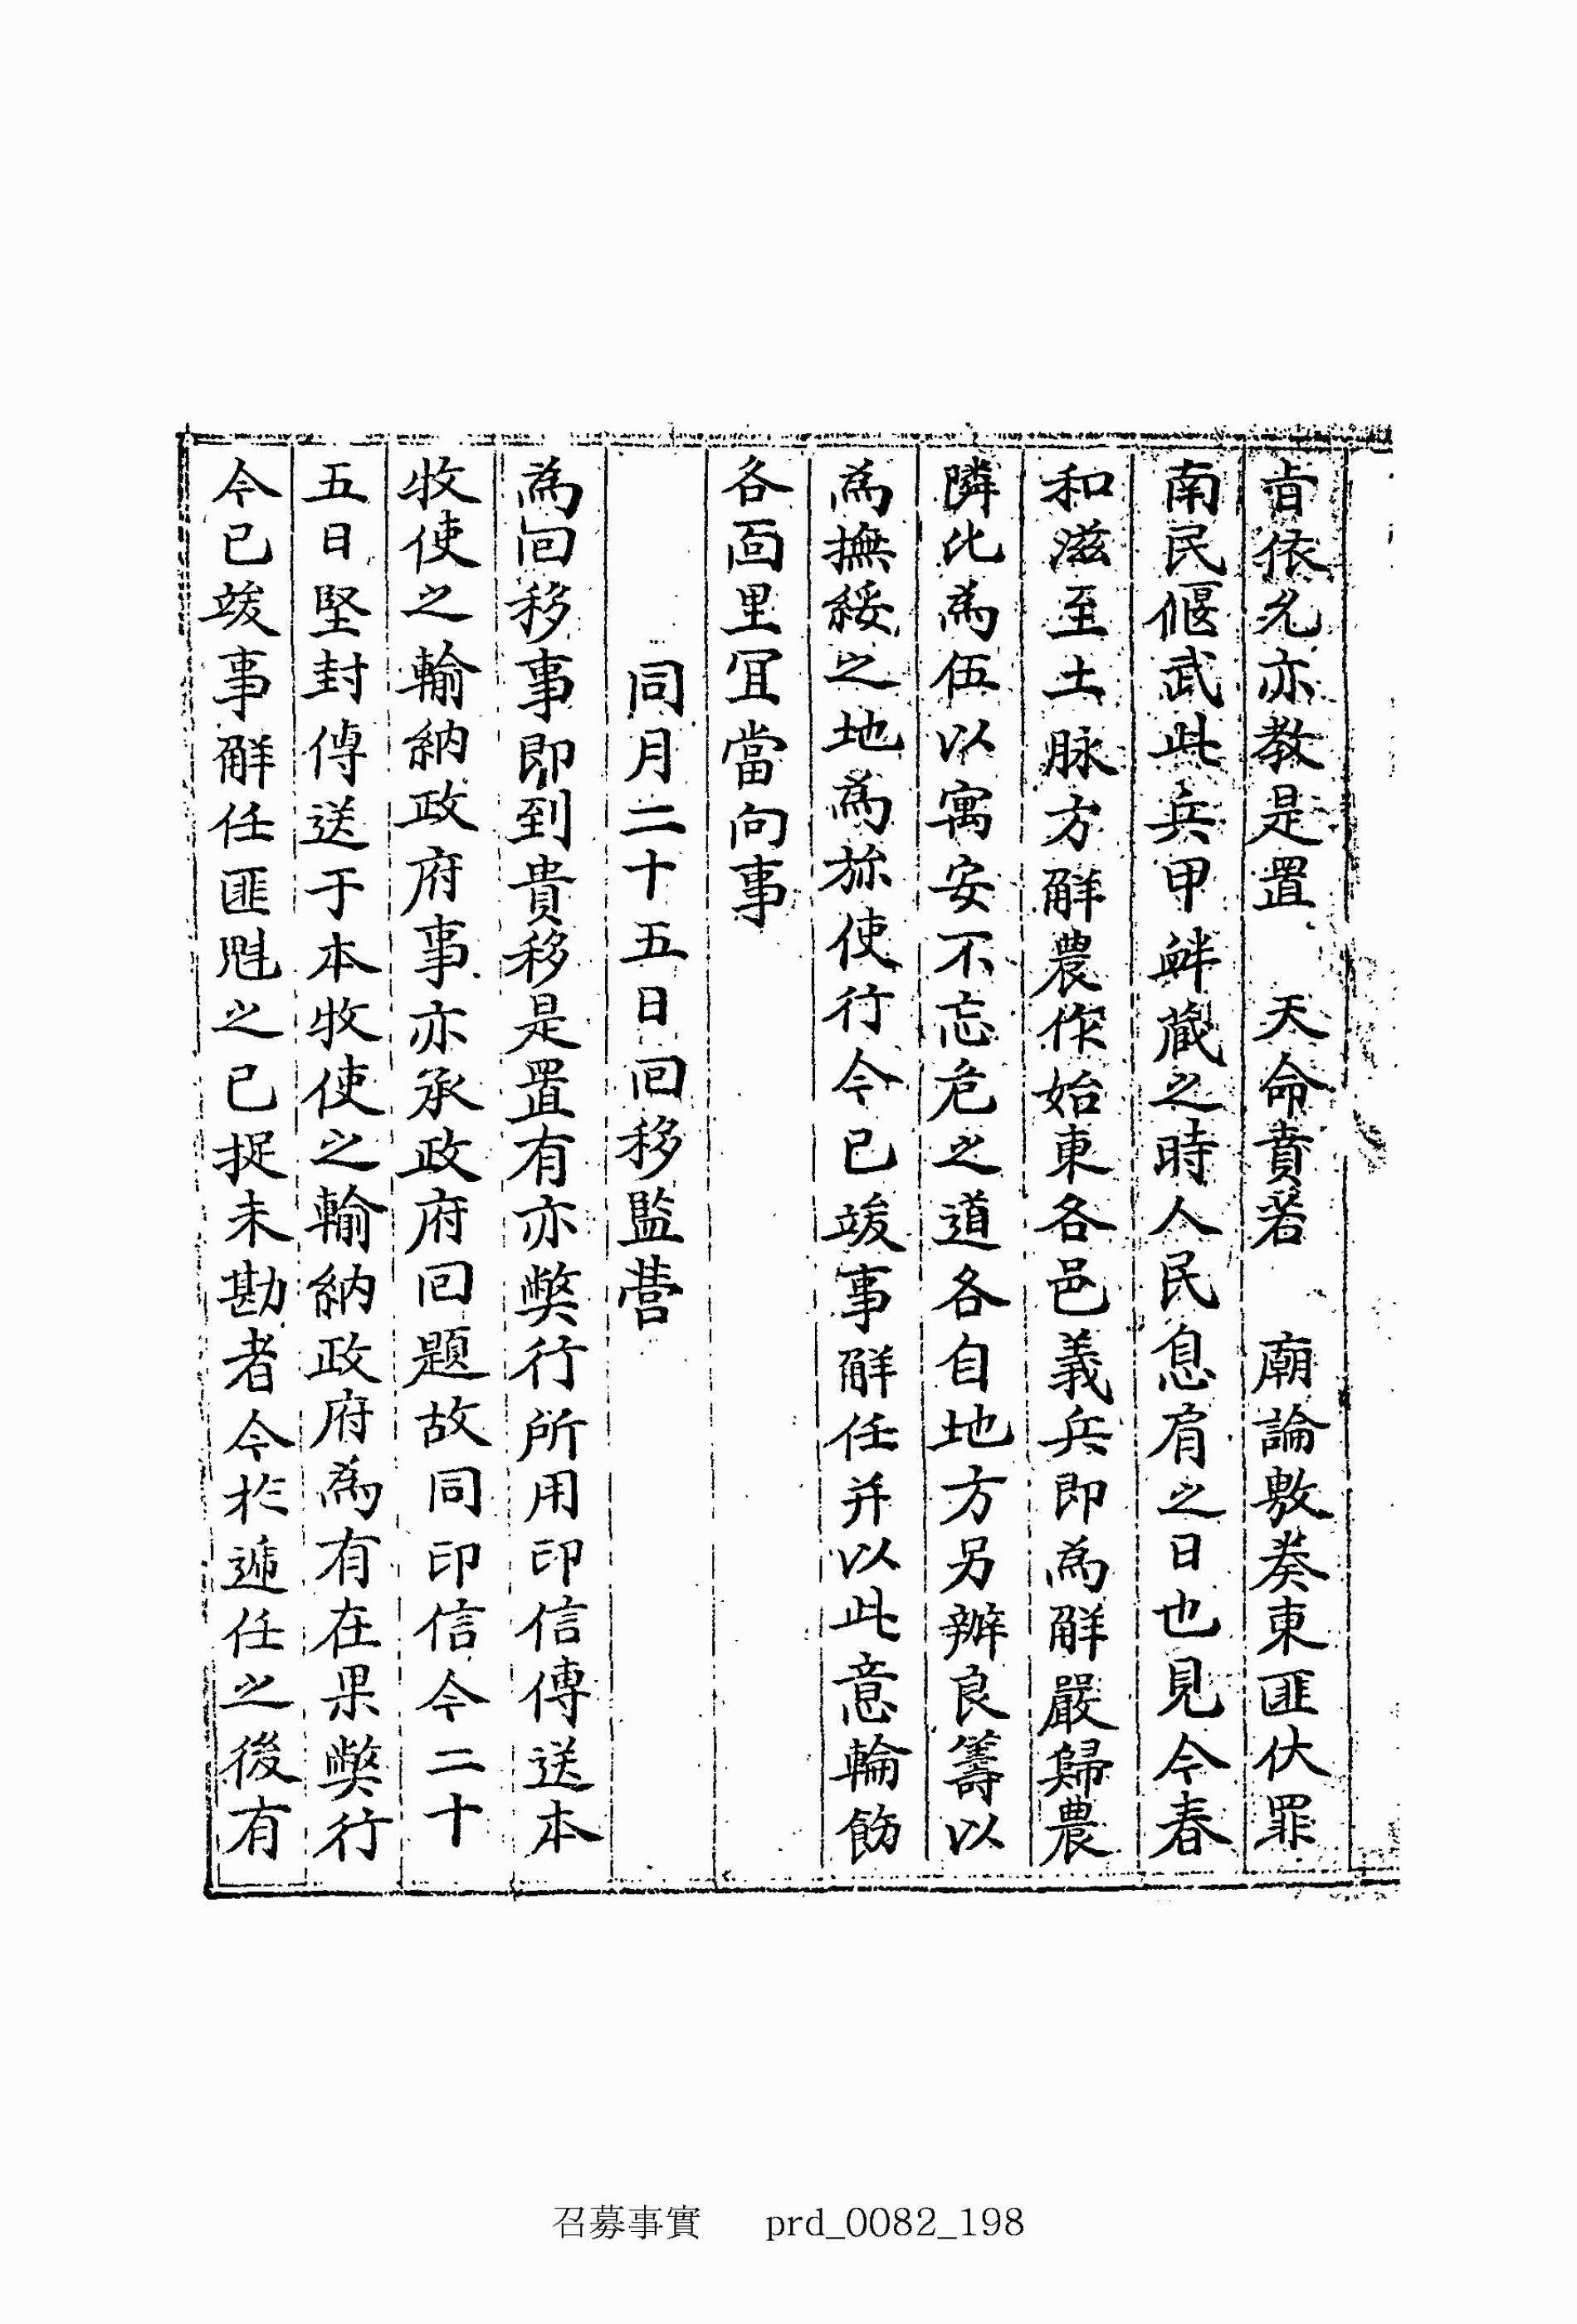 旨依允亦教是置 天命賁若 廟論敷奏東匪伏罪
南民偃武此兵甲衅藏之時人民息肩之日也見今春
和滋至土脉方觧農作始東各邑義兵即為觧嚴歸農
隣比為伍以寓安不忘危之道各自地方另辦良籌以
為撫綏之地為旀使行今已竣事觧任并以此意輪飭
各面里冝當向事
同月二十五日回移監營
為回移事即到貴移是置有亦弊行所用印信傳送本
牧使之輸納政府事亦承政府回題故同印信今二十
五日堅封傳送于本牧使之輸納政府為有在果弊行
今已竣事觧任匪魁之已捉未勘者今於遞任之後有
召募事實 prd_0082_198